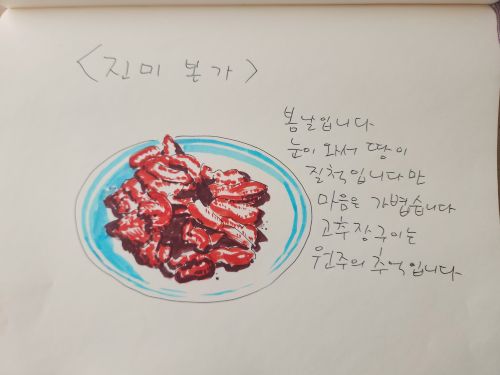 <진미 본가>
봄날입니다
눈이 와서 땅이
질척입니다만
마음은 가볍습니다
고추장구이는
원주의 추억입니다